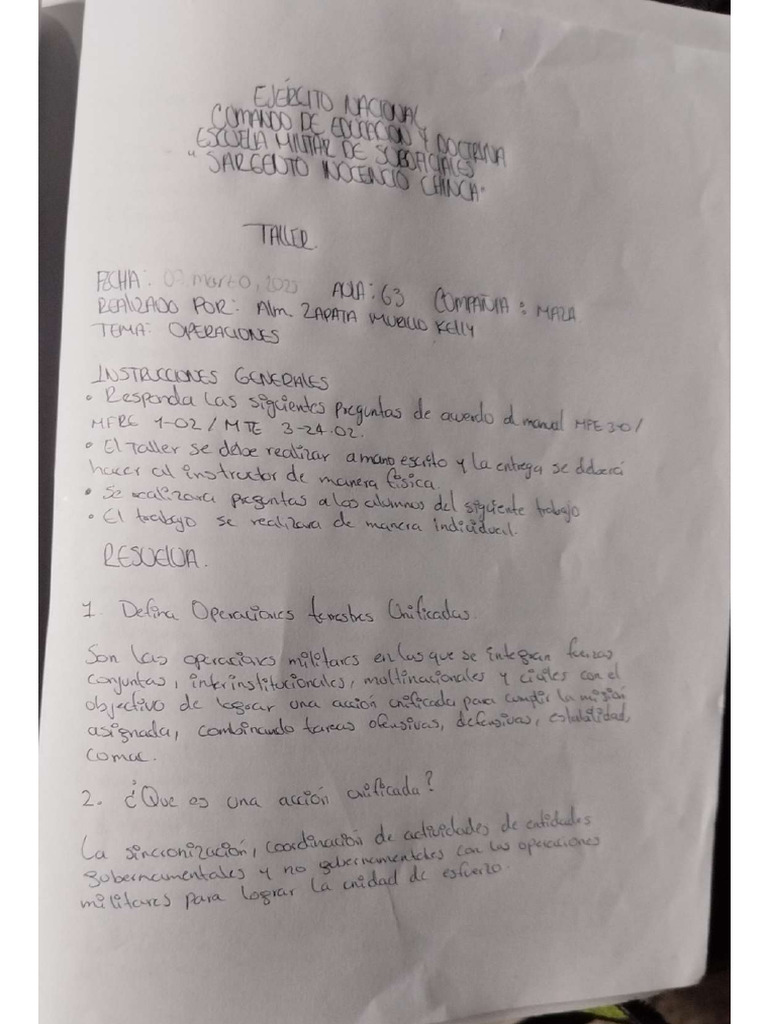 EJÉRCITO NACIONAL
COMANDO DE EDUCACION Y DOCTRINA
ESCUELA MILITAR DE SUBOFICIALES
"SARGENTO INOCENCIO CHINCA"
TALLER.
FECHA: 09 marzo, 2023 AULA: 63 COMPAÑIA: MAZA
REALIZADO POR: Alm. ZAPATA MURILLO KELLY
TEMA: OPERACIONES
INSTRUCCIONES GENERALES
• Responda las siguientes preguntas de acuerdo al manual MFE 3-0/
MFRE 1-02 / MTE 3-24.02.
• El Taller se debe realizar a mano escrito y la entrega se deberá
hacer al instructor de manera física.
• Se realizara preguntas a los alumnos del siguiente trabajo
• El trabajo se realizara de manera individual.
RESUELVA.
1. Defina Operaciones terrestres Unificadas.
Son las operaciones militares en las que se integran fuerzas
conjuntas, interinstitucionales, multinacionales y civiles con el
objectivo de lograr una acción unificada para cumplir la mision
asignada, combinando tareas ofensivas, defensivas, estabilidad,
comac.
2. ¿Que es una acción unificada?
La sincronización, coordinación de actividades de entidades
gubernamentales y no gubernamentales con las operaciones
militares para lograr la unidad de esfuerzo.